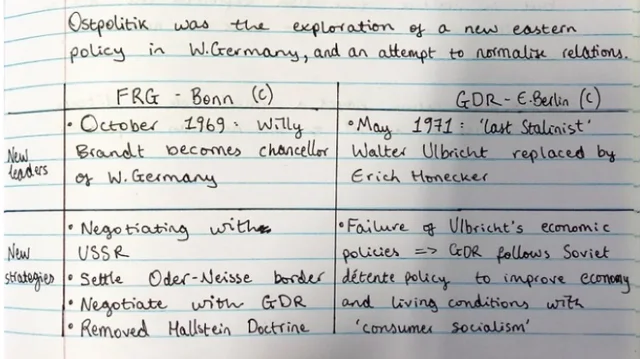 Ostpolitik was the exploration of a new eastern
policy in W.Germany, and an attempt to normalise relations.
FRG - Bonn (C)
GDR - E.Berlin (C)
New
leaders
• October 1969: Willy
Brandt becomes chancellor
of W.Germany
• May 1971: 'last Stalinist'
Walter Ulbricht replaced by
Erich Honecker
New
strategies
• Negotiating with
USSR
• Settle Oder-Neisse border
• Negotiate with GDR
• Removed Hallstein Doctrine
• Failure of Ulbricht's economic
policies => GDR follows Soviet
détente policy to improve economy
and living conditions with
'consumer socialism'